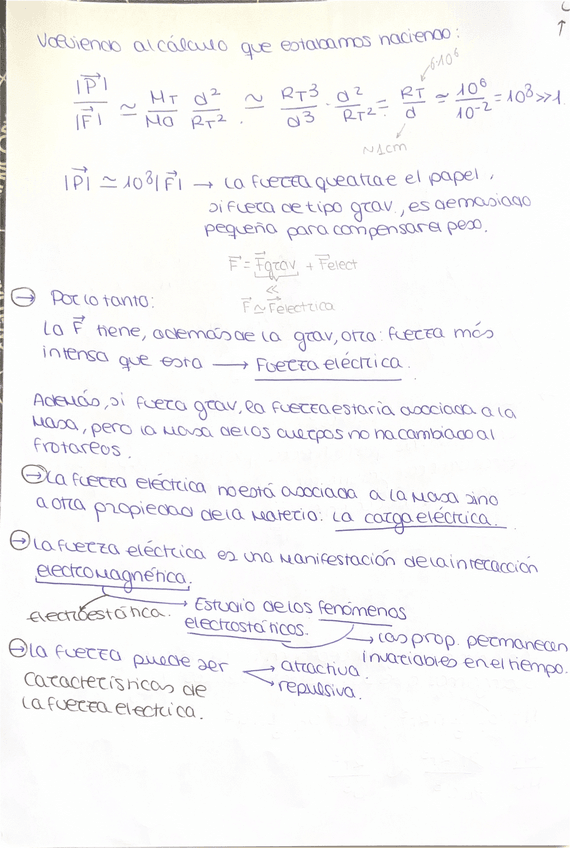 Volviendo al cálculo que estabamos haciendo:
6·10⁶
|P⃗| / |F⃗| ≃ M_T/M_O d²/R_T² ≃ R_T³/d³ · d²/R_T² = R_T/d ≃ 10⁶/10⁻² = 10⁸ ≫ 1
~1cm
|P⃗| ≃ 10⁸|F⃗| → La fuerza que atrae el papel,
si fuera de tipo grav, es demasiado
pequeña para compensar el peso.
F⃗ = F⃗grav + F⃗elect
≪
F⃗ ≃ F⃗electrica
→ Por lo tanto:
La F⃗ tiene, además de la grav, otra fuerza más
intensa que esta → Fuerza eléctrica.
Además, si fuera grav, la fuerza estaría asociada a la
masa, pero la masa de los cuerpos no ha cambiado al
frotarlos.
→ La fuerza eléctrica no está asociada a la masa sino
a otra propiedad de la materia: la carga eléctrica.
→ La fuerza eléctrica es una manifestación de la interacción
electromagnética.
electroestática. → Estudio de los fenómenos
electrostáticos. → las prop. permanecen
invariables en el tiempo.
→ La fuerza puede ser → atractiva.
→ repulsiva.
características de
la fuerza electrica.